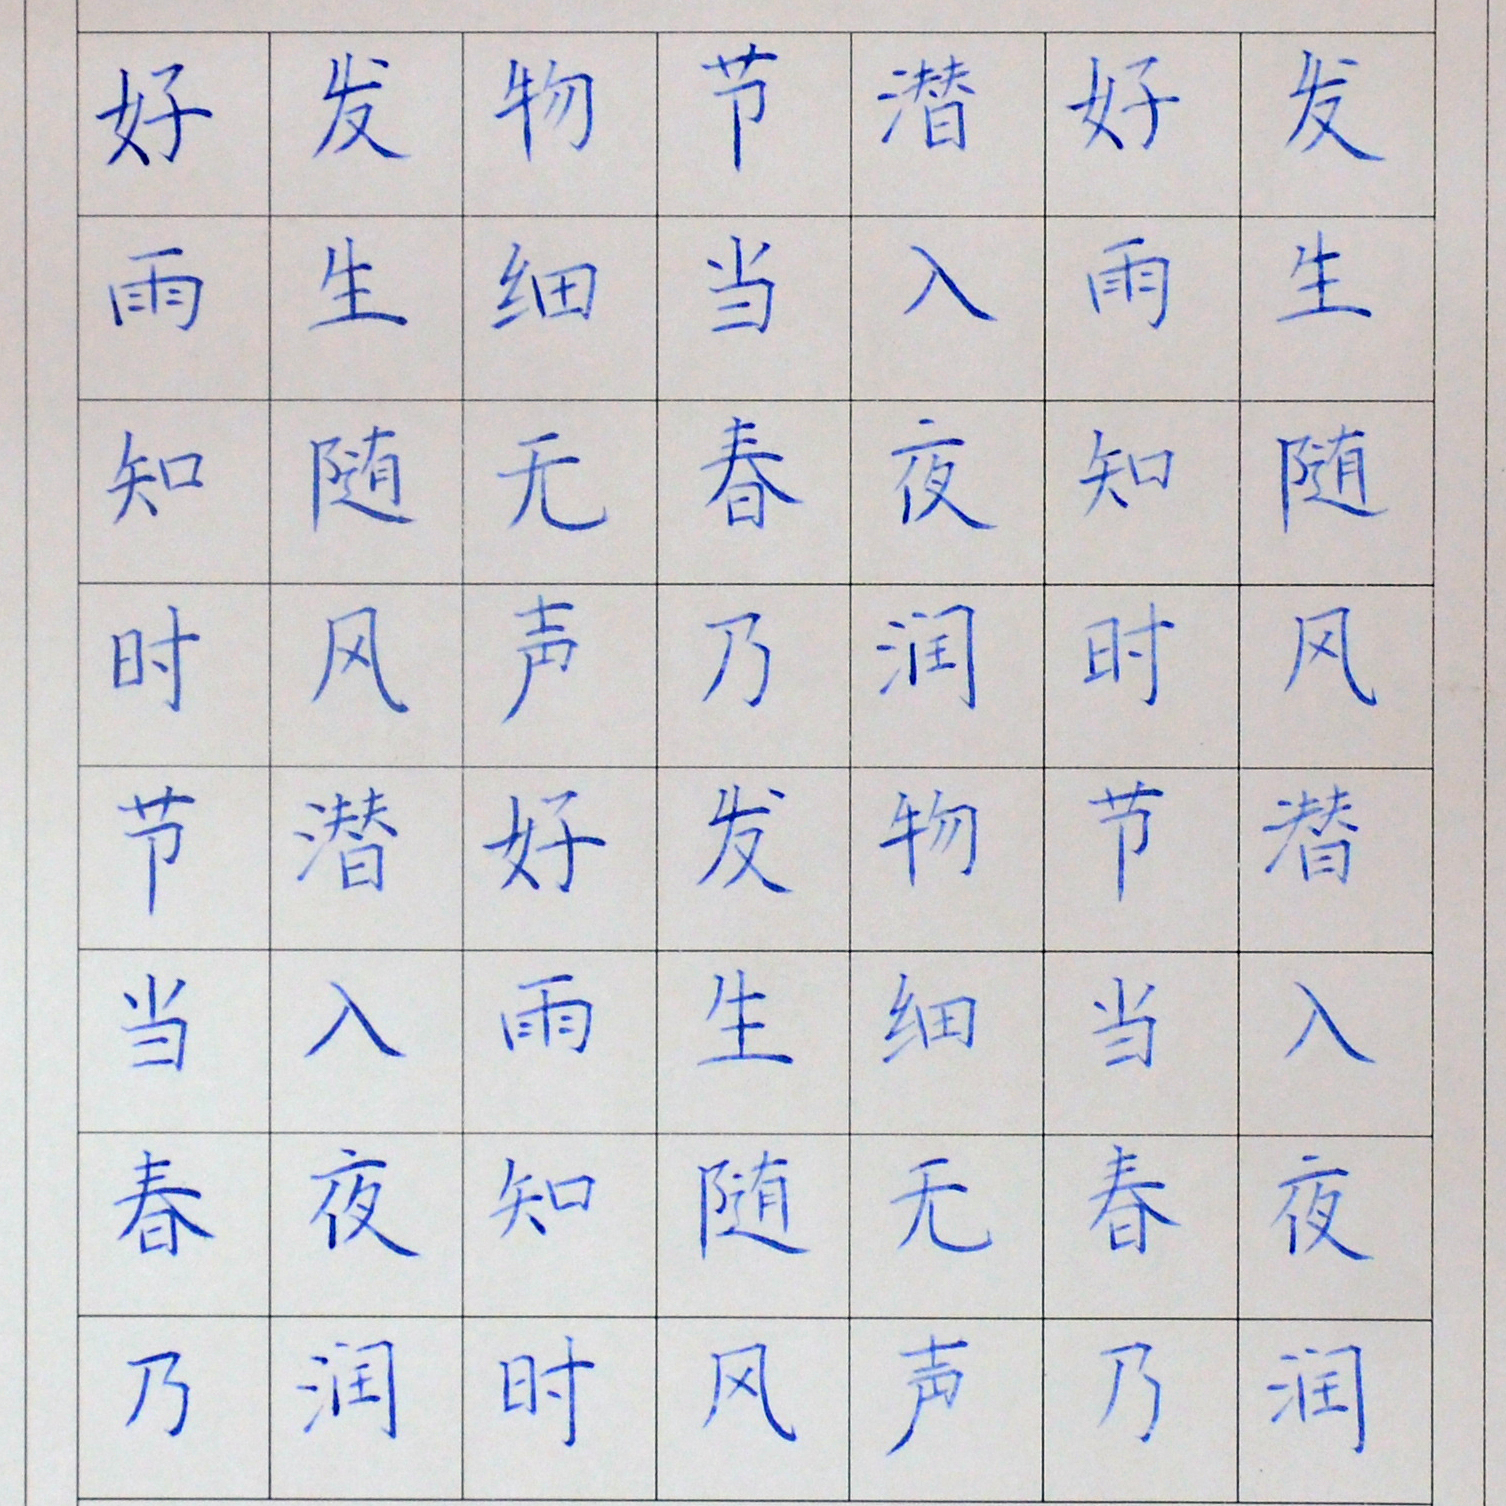 好雨知时节当春乃
发生随风潜入夜润
物细无声好雨知时
节当春乃发生随风
潜入夜润物细无声
好雨知时节当春乃
发生随风潜入夜润